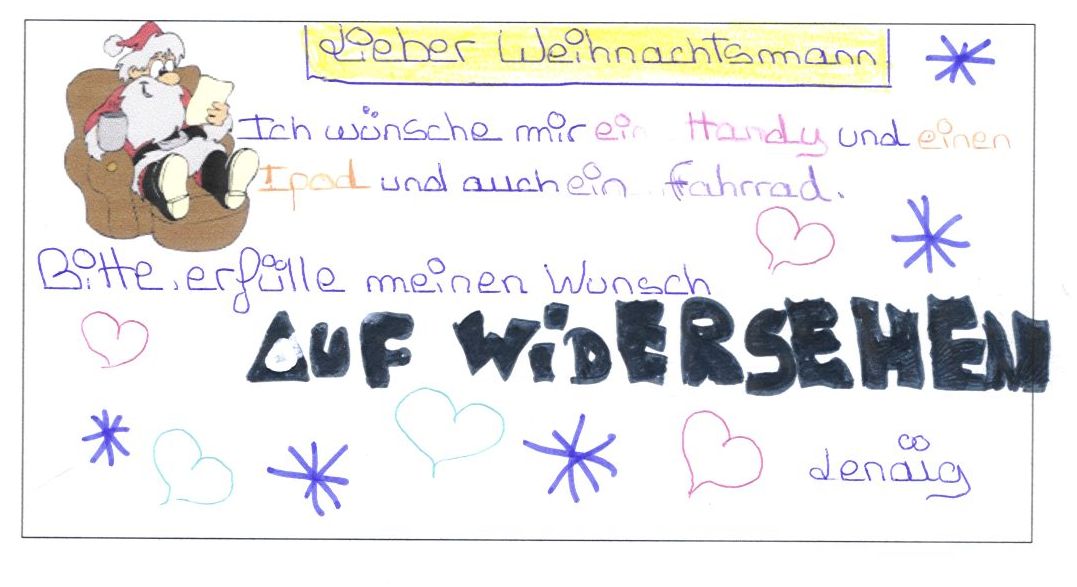 Lieber Weihnachtsmann
Ich wünsche mir ein Handy und einen
Ipod und auch ein Fahrrad.
Bitte, erfülle meinen Wunsch
AUF WiDERSEHEN
Lenaïg